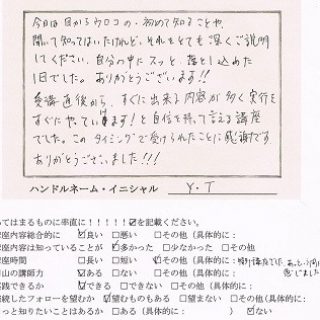 今日は目からウロコの、初めて知ることや、
聞いて知ってはいたけれど、それをとても深くご説明
してくださり、自分の中にスッと、落とし込めた
1日でした。ありがとうございます!!
受講直後から、すぐに出来る内容が多く実行を
すぐにやっていけます!と自信を持って言える講座
でした。このタイミングで受けられたことに感謝です
ありがとうございました!!!
ハンドルネーム・イニシャル Y.T
てはまるものに率直に!!!!!☑を記載ください。
座内容総合的に ☑良い □悪い □その他(具体的に:
座内容は知っていることが ☑多かった □少なかった □その他
座時間 □長い □短い ☑その他(具体的に:
山の講師力 ☑ある □ない □その他(具体的に:
践できるか ☑できる □できない □その他(具体的に:
続したフォローを望むか ☑望むものもある □望まない □その他(具体的に:
っと知りたいことはあるか □ある(具体的に: ) ☑ない